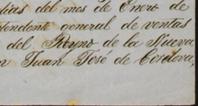 dias del mes de Enero de
tendente general de ventas
del Reyno de la Nueva
n Juan José de Cordova,